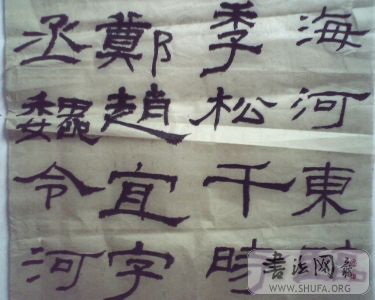 海河東
季松千時
鄭趙宜字
丞魏令河
書法网
WWW.SHUFA.ORG